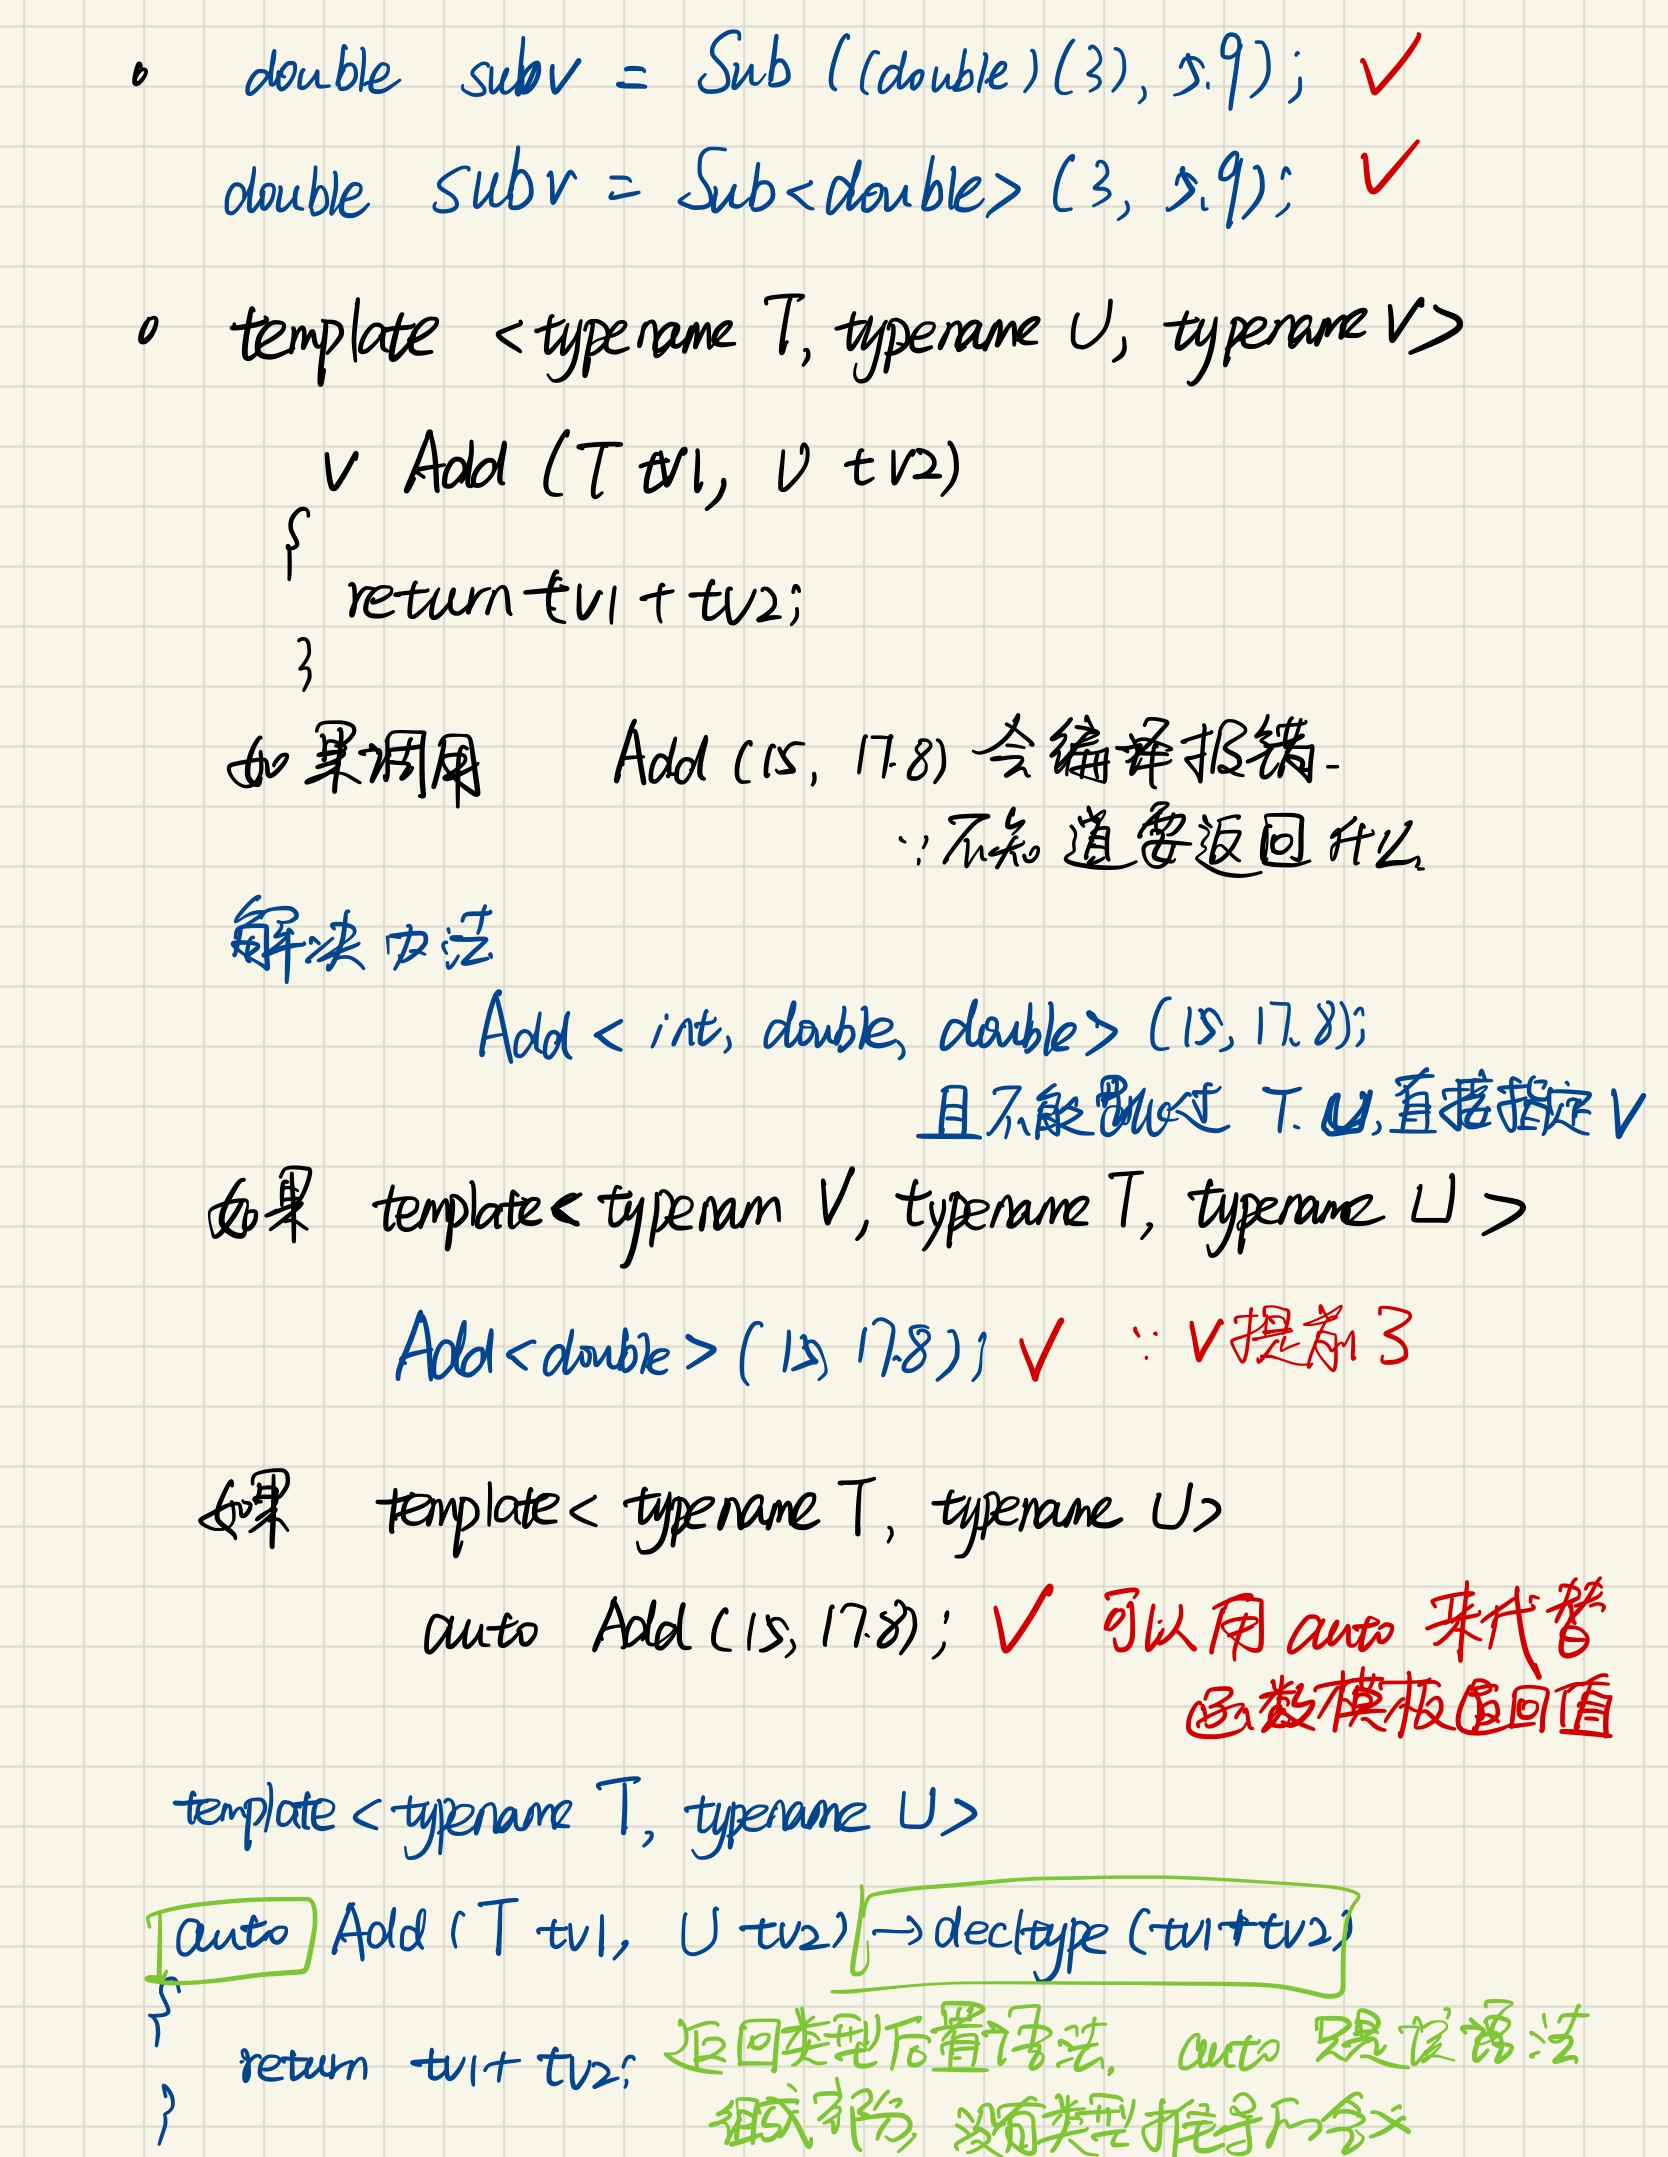 double subv = Sub ((double)(3), 5.9); ✓
double subv = Sub<double> (3, 5.9); ✓
template <typename T, typename U, typename V>
V Add (T tv1, U tv2)
{
return tv1 + tv2;
}
如果调用 Add (15, 17.8) 会编译报错.
∵不知道要返回什么
解决办法
Add < int, double, double> (15, 17.8);
且不能 过 T. U, 直接指定 V
如果 template< typenam V, typename T, typename U >
Add<double> (15, 17.8); ✓ ∵ V提前了
如果 template< typename T, typename U>
auto Add (15, 17.8); ✓ 可以用 auto 来代替
函数模板返回值
template <typename T, typename U>
auto Add (T tv1, U tv2) → decltype (tv1+tv2)
{
return tv1 + tv2; 返回类型后置语法, auto 只是该语法
} 组成部分, 没有类型推导的含义